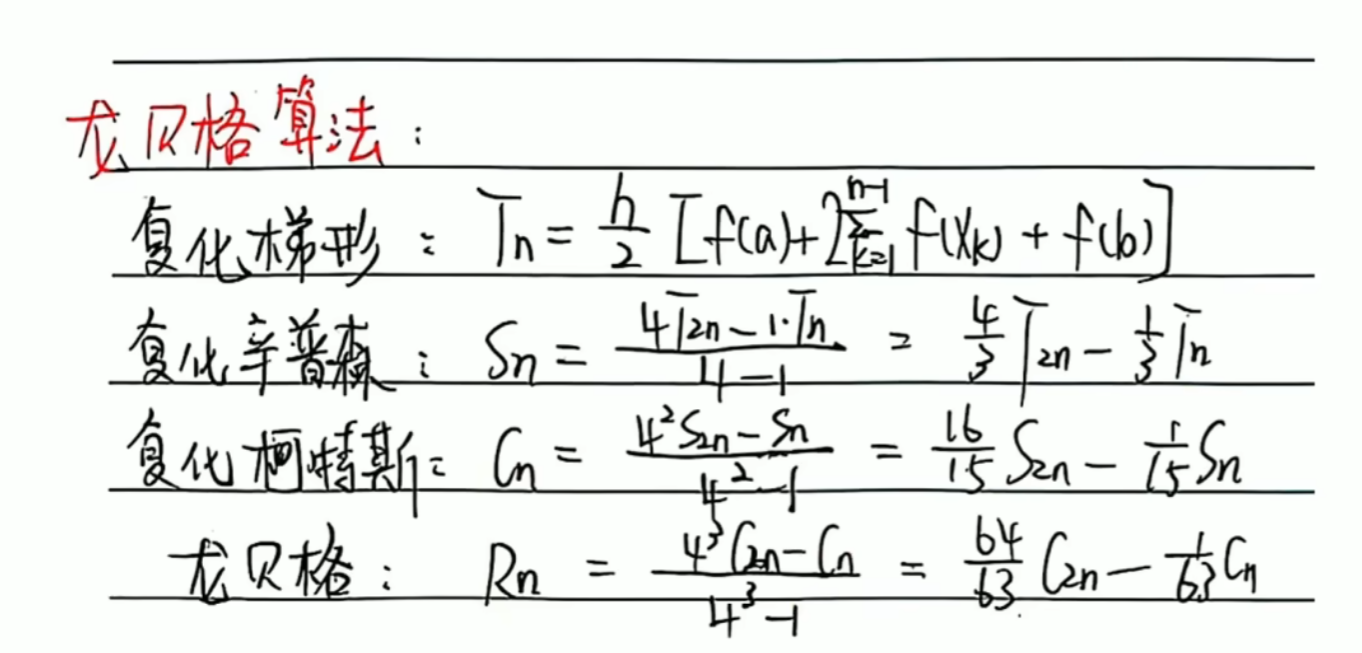 龙贝格算法:
复化梯形: Tn = h/2 [f(a)+2∑_{k=1}^{n-1} f(xk) + f(b)]
复化辛普森: Sn = (4T2n - 1·Tn)/(4-1) = 4/3 T2n - 1/3 Tn
复化柯特斯: Cn = (4²S2n - Sn)/(4²-1) = 16/15 S2n - 1/15 Sn
龙贝格: Rn = (4³C2n - Cn)/(4³-1) = 64/63 C2n - 1/63 Cn